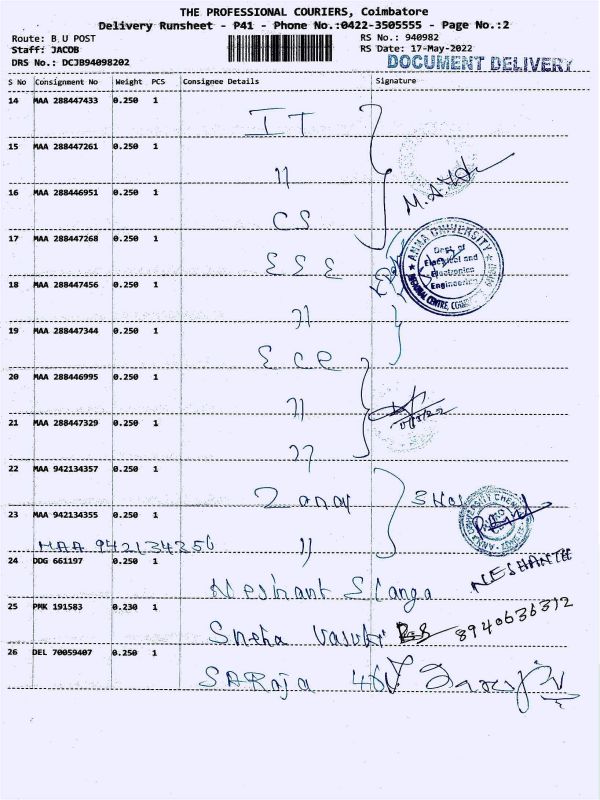 THE PROFESSIONAL COURIERS, Coimbatore
Delivery Runsheet - P41 - Phone No.:0422-3505555 - Page No.:2
Route: B.U POST
RS No.: 940982
Staff: JACOB
RS Date: 17-May-2022
DRS No.: DCJB94098202
DOCUMENT DELIVERY
S No Consignment No Weight PCS Consignee Details Signature
14 MAA 288447433 0.250 1 IT
15 MAA 288447261 0.250 1 11
16 MAA 288446951 0.250 1 CS
17 MAA 288447268 0.250 1 ESE
ANNA UNIVERSITY
Dept of
Electrical and
Electronics
Engineering
REGIONAL CENTRE,
18 MAA 288447456 0.250 1 11
19 MAA 288447344 0.250 1 ECE
20 MAA 288446995 0.250 1 11
21 MAA 288447329 0.250 1 11
22 MAA 942134357 0.250 1
23 MAA 942134355 0.250 1 11
MAA 942134356
24 DDG 661197 0.250 1 Neshant Slanga NESHANTH
25 PMK 191583 0.230 1 Sneha Vasuki 8940636312
26 DEL 70059407 0.250 1 SARaja